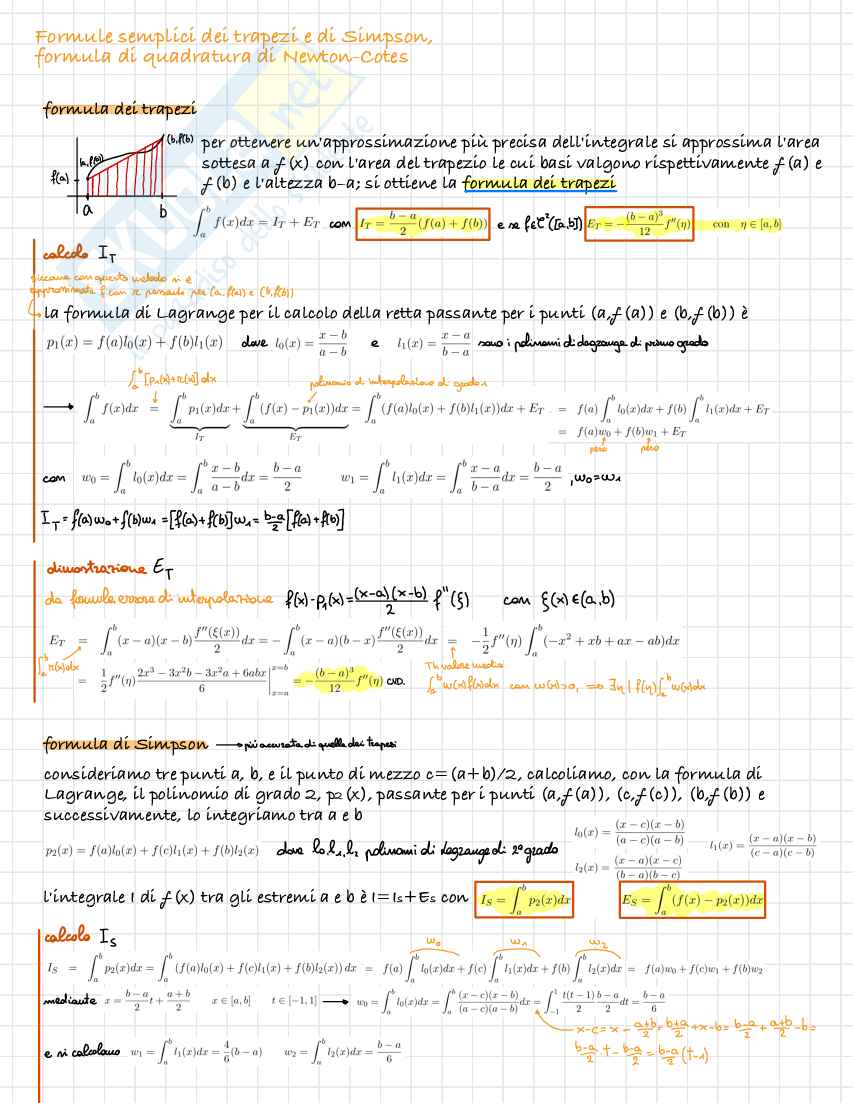 Formule semplici dei trapezi e di Simpson,
formula di quadratura di Newton-Cotes
formula dei trapezi
(b,f(b))
(a,f(a))
f(a)
a b
per ottenere un'approssimazione più precisa dell'integrale si approssima l'area
sottesa a f(x) con l'area del trapezio le cui basi valgono rispettivamente f(a) e
f(b) e l'altezza b-a; si ottiene la formula dei trapezi
∫_a^b f(x)dx = I_T + E_T con I_T = (b-a)/2 (f(a) + f(b)) e se f∈C²([a,b]) E_T = -(b-a)³/12 f''(η) con η ∈ [a,b]
calcolo I_T
siccome con questo metodo si è
approssimata f con r passante per (a,f(a)) e (b,f(b))
la formula di Lagrange per il calcolo della retta passante per i punti (a,f(a)) e (b,f(b)) è
p₁(x) = f(a)l₀(x) + f(b)l₁(x) dove l₀(x) = (x-b)/(a-b) e l₁(x) = (x-a)/(b-a) sono i polinomi di Lagrange di primo grado
∫_a^b [p₁(x)+r(x)]dx polinomio di interpolazione di grado 1
→ ∫_a^b f(x)dx = ∫_a^b p₁(x)dx + ∫_a^b (f(x) - p₁(x))dx = ∫_a^b (f(a)l₀(x) + f(b)l₁(x))dx + E_T = f(a)∫_a^b l₀(x)dx + f(b)∫_a^b l₁(x)dx + E_T
I_T E_T = f(a)w₀ + f(b)w₁ + E_T
peso peso
con w₀ = ∫_a^b l₀(x)dx = ∫_a^b (x-b)/(a-b) dx = (b-a)/2 w₁ = ∫_a^b l₁(x)dx = ∫_a^b (x-a)/(b-a) dx = (b-a)/2 , w₀=w₁
I_T = f(a)w₀+f(b)w₁ = [f(a)+f(b)]w₁ = (b-a)/2 [f(a)+f(b)]
dimostrazione E_T
da formula errore di interpolazione f(x)-p₁(x) = (x-a)(x-b)/2 f''(ξ) con ξ(x)∈(a,b)
E_T = ∫_a^b (x-a)(x-b) f''(ξ(x))/2 dx = -∫_a^b (x-a)(b-x) f''(ξ(x))/2 dx = -1/2 f''(η) ∫_a^b (-x² + xb + ax - ab)dx
∫_a^b r(x)dx Th valore medio
= 1/2 f''(η) (2x³ - 3x²b - 3x²a + 6abx)/6 |_{x=a}^{x=b} = -(b-a)³/12 f''(η) CVD.
∫_a^b w(x)f(x)dx con w(x)>0, => ∃η | f(η)∫_a^b w(x)dx
formula di Simpson → più accurata di quella dei trapezi
consideriamo tre punti a, b, e il punto di mezzo c=(a+b)/2, calcoliamo, con la formula di
Lagrange, il polinomio di grado 2, p2(x), passante per i punti (a,f(a)), (c,f(c)), (b,f(b)) e
successivamente, lo integriamo tra a e b
p₂(x) = f(a)l₀(x) + f(c)l₁(x) + f(b)l₂(x) dove l₀,l₁,l₂ polinomi di Lagrange di 2° grado
l₀(x) = (x-c)(x-b)/(a-c)(a-b) l₁(x) = (x-a)(x-b)/(c-a)(c-b)
l₂(x) = (x-a)(x-c)/(b-a)(b-c)
l'integrale I di f(x) tra gli estremi a e b è I=Is+Es con I_S = ∫_a^b p₂(x)dx E_S = ∫_a^b (f(x) - p₂(x))dx
calcolo I_S
w₀ w₁ w₂
I_S = ∫_a^b p₂(x)dx = ∫_a^b (f(a)l₀(x) + f(c)l₁(x) + f(b)l₂(x)) dx = f(a)∫_a^b l₀(x)dx + f(c)∫_a^b l₁(x)dx + f(b)∫_a^b l₂(x)dx = f(a)w₀ + f(c)w₁ + f(b)w₂
mediante x = (b-a)/2 t + (a+b)/2 x ∈ [a,b] t ∈ [-1,1] → w₀ = ∫_a^b l₀(x)dx = ∫_a^b (x-c)(x-b)/(a-c)(a-b) dx = ∫_{-1}^1 t(t-1)/2 (b-a)/2 dt = (b-a)/6
x-c = x - (a+b)/2 = (b+a)/2 + x-b = (b-a)/2 + (a+b)/2 - b =
(b-a)/2 t - (b-a)/2 = (b-a)/2 (t-1)
e si calcolano w₁ = ∫_a^b l₁(x)dx = 4/6 (b-a) w₂ = ∫_a^b l₂(x)dx = (b-a)/6